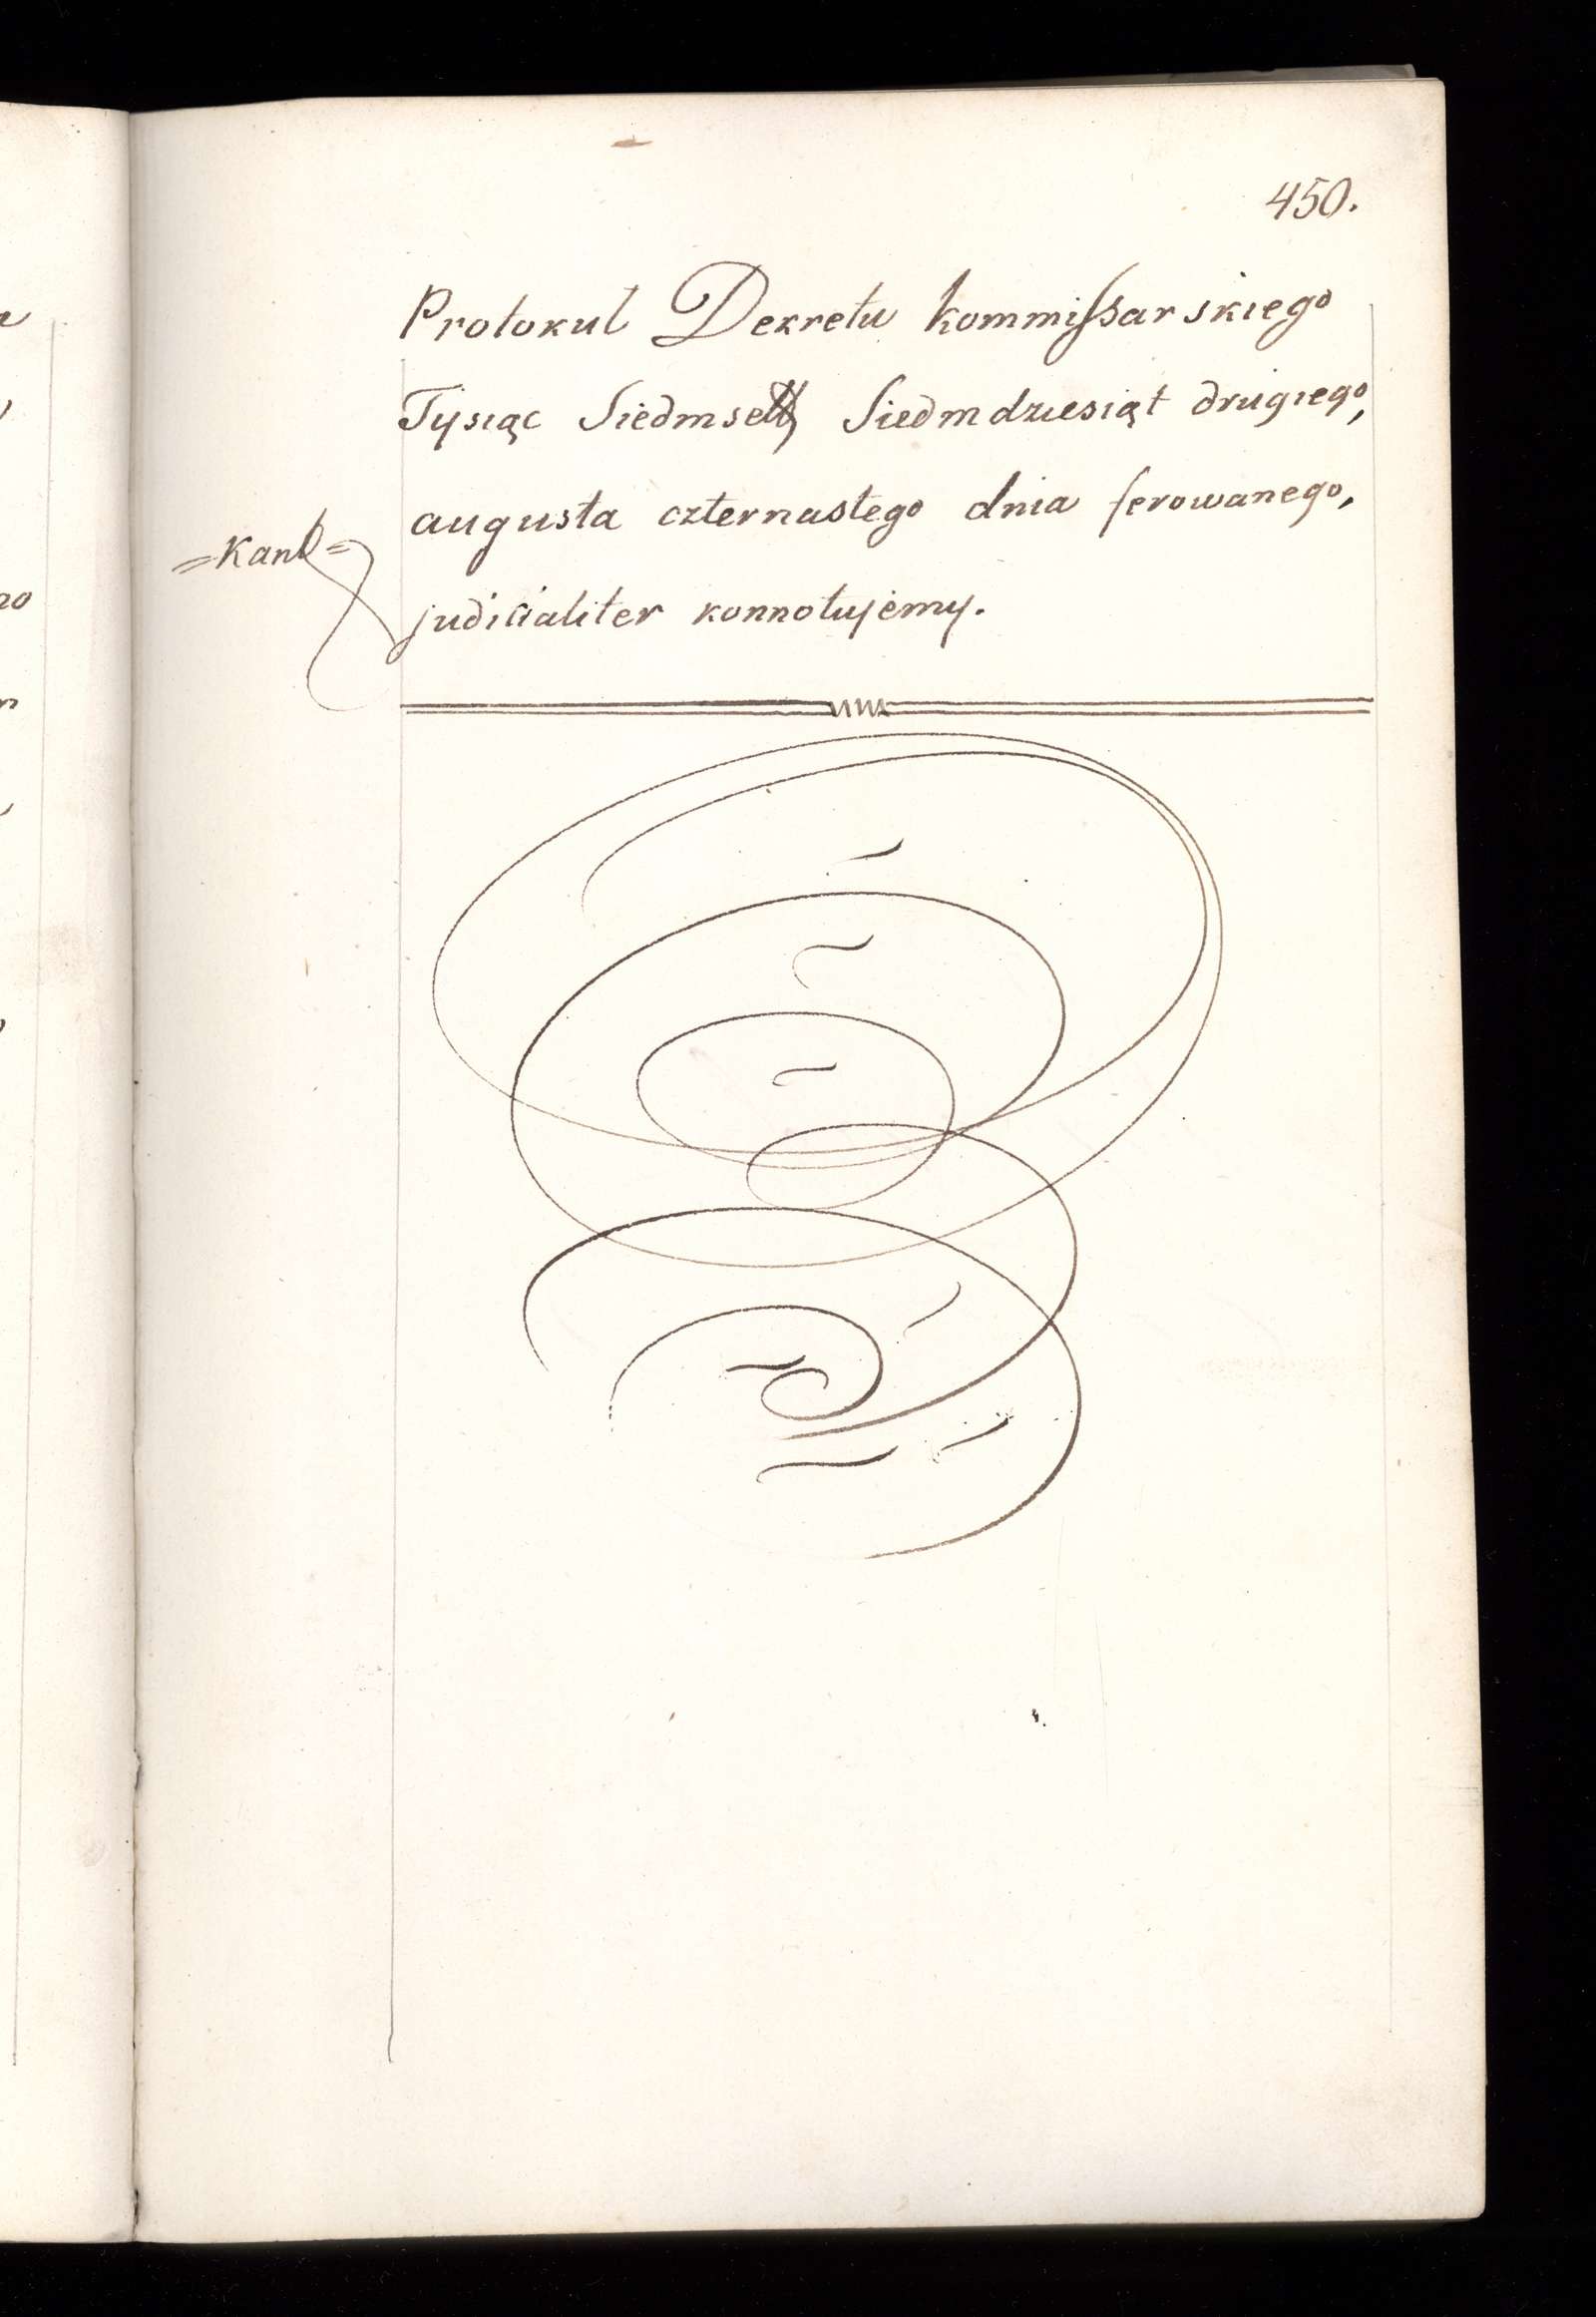 450.
Protokul Dekretu kommissarskiego
Tysiąc Siedmset Siedmdziesiąt drugiego,
augusta czternastego dnia ferowanego,
=Kant=
judicialiter konnotujemy.